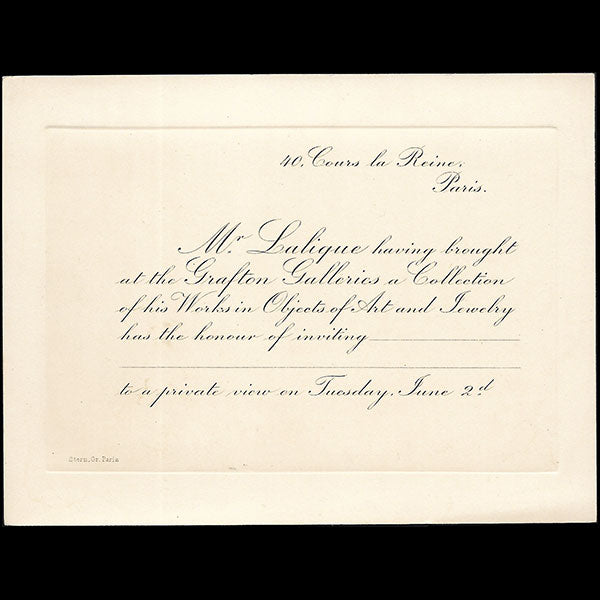 40, Cours la Reine.
Paris.
Mr. Lalique having brought
at the Grafton Galleries a Collection
of his Works in Objects of Art and Jewelry
has the honour of inviting
to a private view on Tuesday, June 2d
Stern. Gr. Paris